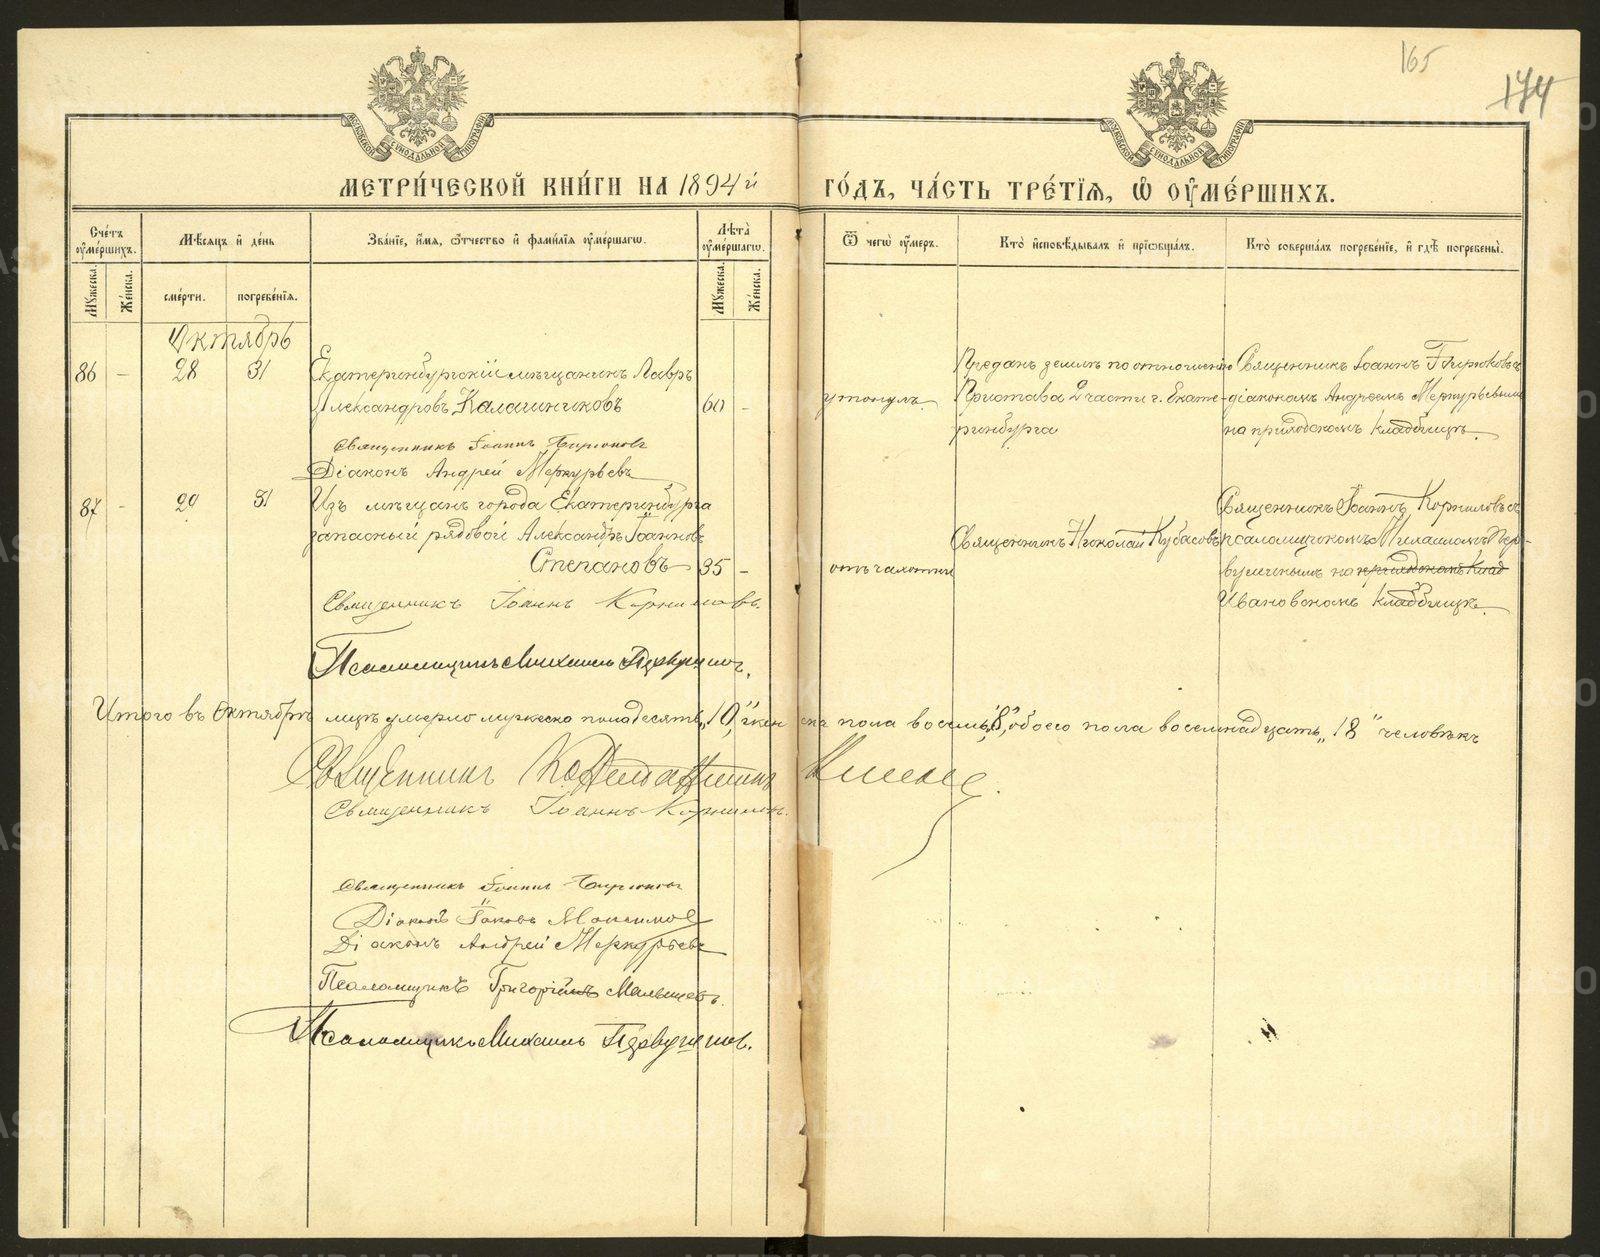 165
174
МОСКОВСКОЙ СѴНОДАЛЬНОЙ ТИПОГРАФІИ
МОСКОВСКОЙ СѴНОДАЛЬНОЙ ТИПОГРАФІИ
МЕТРИ́ЧЕСКОЙ КНИ́ГИ НА 1894й ГО́ДЪ, ЧА́СТЬ ТРЕ́ТІѦ, Ѡ ОУМЕ́РШИХЪ.
Сче́тъ оуме́ршихъ.
Мѣ́сяцъ и де́нь
Зва́ніе, и́мя, ѻ́тчество и фами́лія оуме́ршагѡ.
Лѣта̀ оуме́ршагѡ.
Ѿ чегѡ̀ оу́меръ.
Кто̀ исповѣ́дывалъ и пріѡбща́лъ.
Кто̀ соверша́лъ погребе́ніе, и гдѣ̀ погребены̀.
Мꙋ́жеска.
Же́нска.
сме́рти.
погребе́нія.
Мꙋ́жеска.
Же́нска.
Октябрь
86 - 28 31 Екатеринбургскій мѣщанинъ Лавръ
Александровъ Калашниковъ 60 -
утонулъ.
Преданъ землѣ по отношенію
Пристава 2 части г. Екате-
ринбурга
Священникъ Іоаннъ Бирюковъ съ
діакономъ Андреемъ Меркурьевымъ
на приходскомъ кладбищѣ.
Священникъ Іоаннъ Бирюковъ
Діаконъ Андрей Меркурьевъ
87 - 29 31 Изъ мѣщанъ города Екатеринбурга
запасный рядовой Александръ Іоанновъ
Степановъ 35 -
отъ чахотки
Священникъ Николай Кубасовъ
Священникъ Іоаннъ Корниловъ съ
псаломщикомъ Михаиломъ Пер-
вушинымъ на приходскомъ клад
Ивановскомъ кладбищѣ.
Священникъ Іоаннъ Корниловъ.
Псаломщикъ Михаилъ Первушинъ.
Итого въ Октябрѣ мцѣ умерло мужеско пола десять „10„ женскаго пола восемь „8„ обоего пола восемнадцать „18" человѣкъ
Священникъ Константинъ
Священникъ Іоаннъ Корниловъ.
Священникъ Іоаннъ Бирюковъ
Діаконъ Іаковъ Максимовъ
Діаконъ Андрей Меркурьевъ
Псаломщикъ Григорій Малышевъ.
Псаломщикъ Михаилъ Первушинъ.